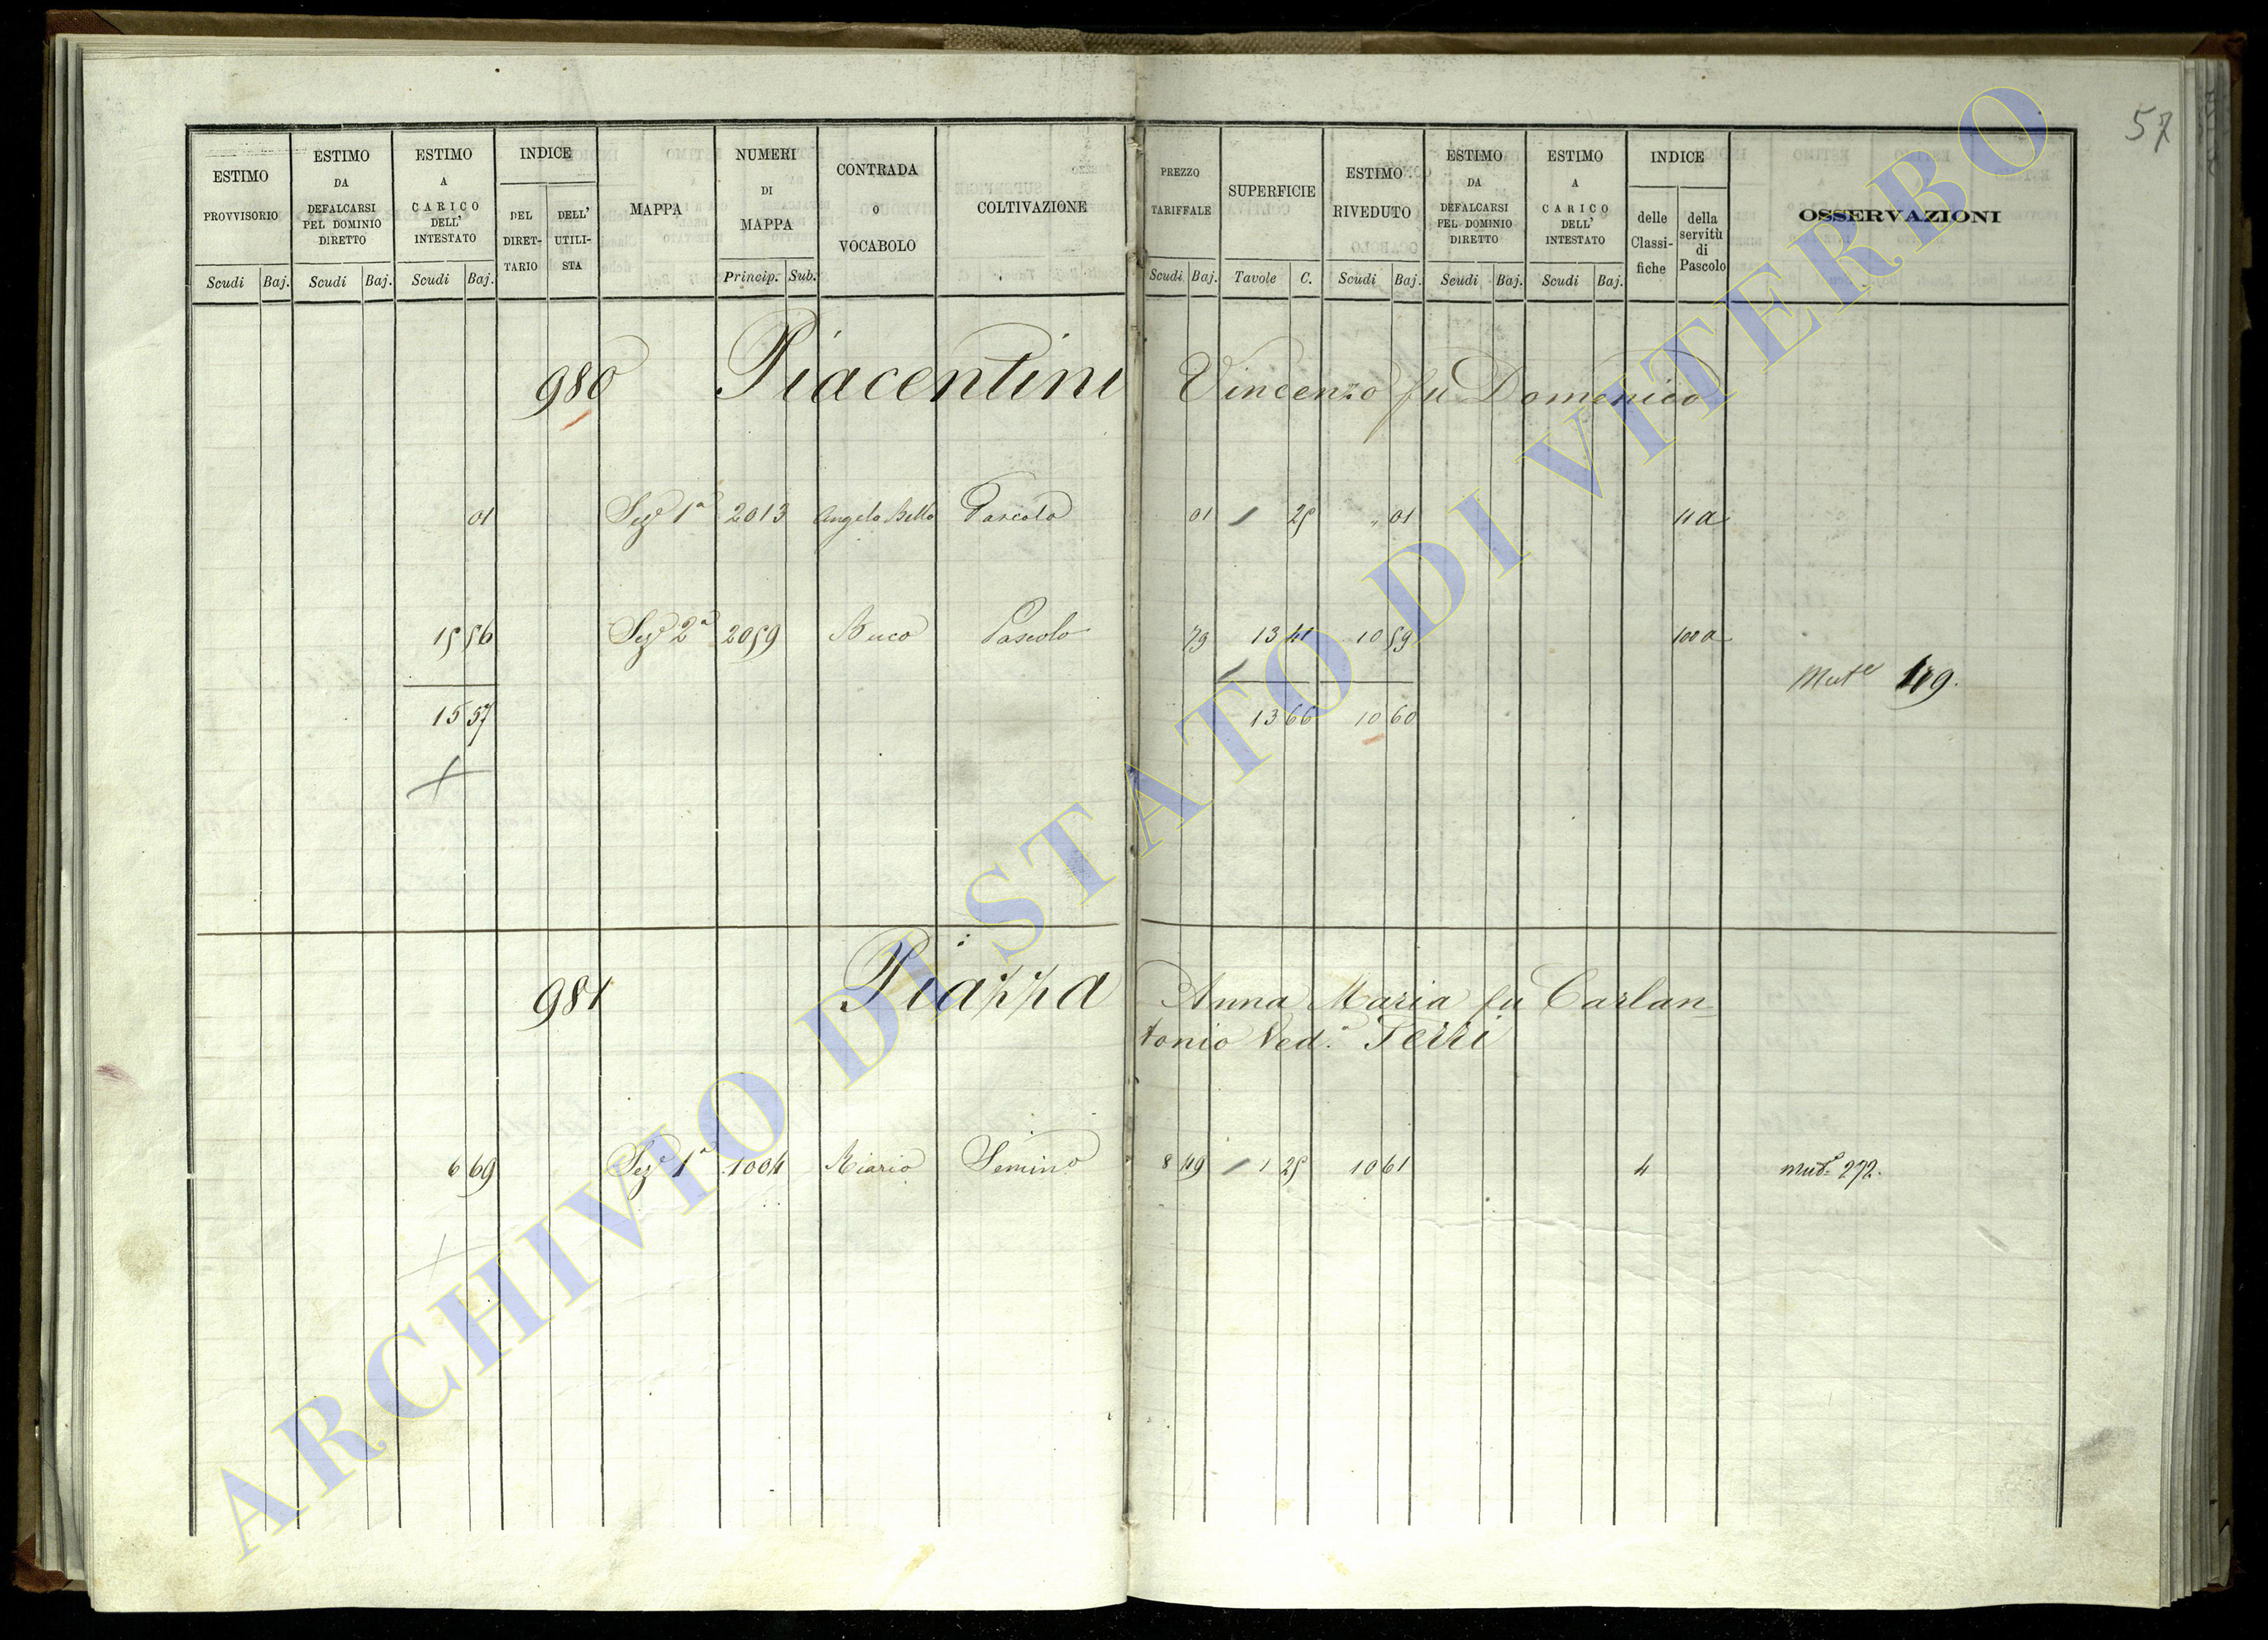 57
ESTIMO PROVVISORIO
Scudi Baj.
ESTIMO DA DEFALCARSI PEL DOMINIO DIRETTO
Scudi Baj.
ESTIMO A CARICO DELL' INTESTATO
Scudi Baj.
INDICE
DEL DIRET-TARIO
DELL' UTILI-STA
MAPPA
NUMERI DI MAPPA
Princip. Sub.
CONTRADA O VOCABOLO
COLTIVAZIONE
PREZZO TARIFFALE
Scudi Baj.
SUPERFICIE
Tavole C.
ESTIMO RIVEDUTO
Scudi Baj.
ESTIMO DA DEFALCARSI PEL DOMINIO DIRETTO
Scudi Baj.
ESTIMO A CARICO DELL' INTESTATO
Scudi Baj.
INDICE
delle Classi-fiche
della servitù di Pascolo
OSSERVAZIONI
980 Piacentini Vincenzo fu Domenico
01 Sez.e 1a 2013 Angelo Bello Pascolo 01 / 25 „ 01 11 a
15 56 Sez.e 2a 2059 Buco Pascolo 79 13 41 10 59 100 a
Mut.e 119.
15 57 13 66 10 60
981 Piazza Anna Maria fu Carlan
tonio Ved.a Ferri
6 69 Sez.e 1a 1004 Riario Semin.o 8 49 / 1 25 10 61 4 mut.e 272.
ARCHIVIO DI STATO DI VITERBO